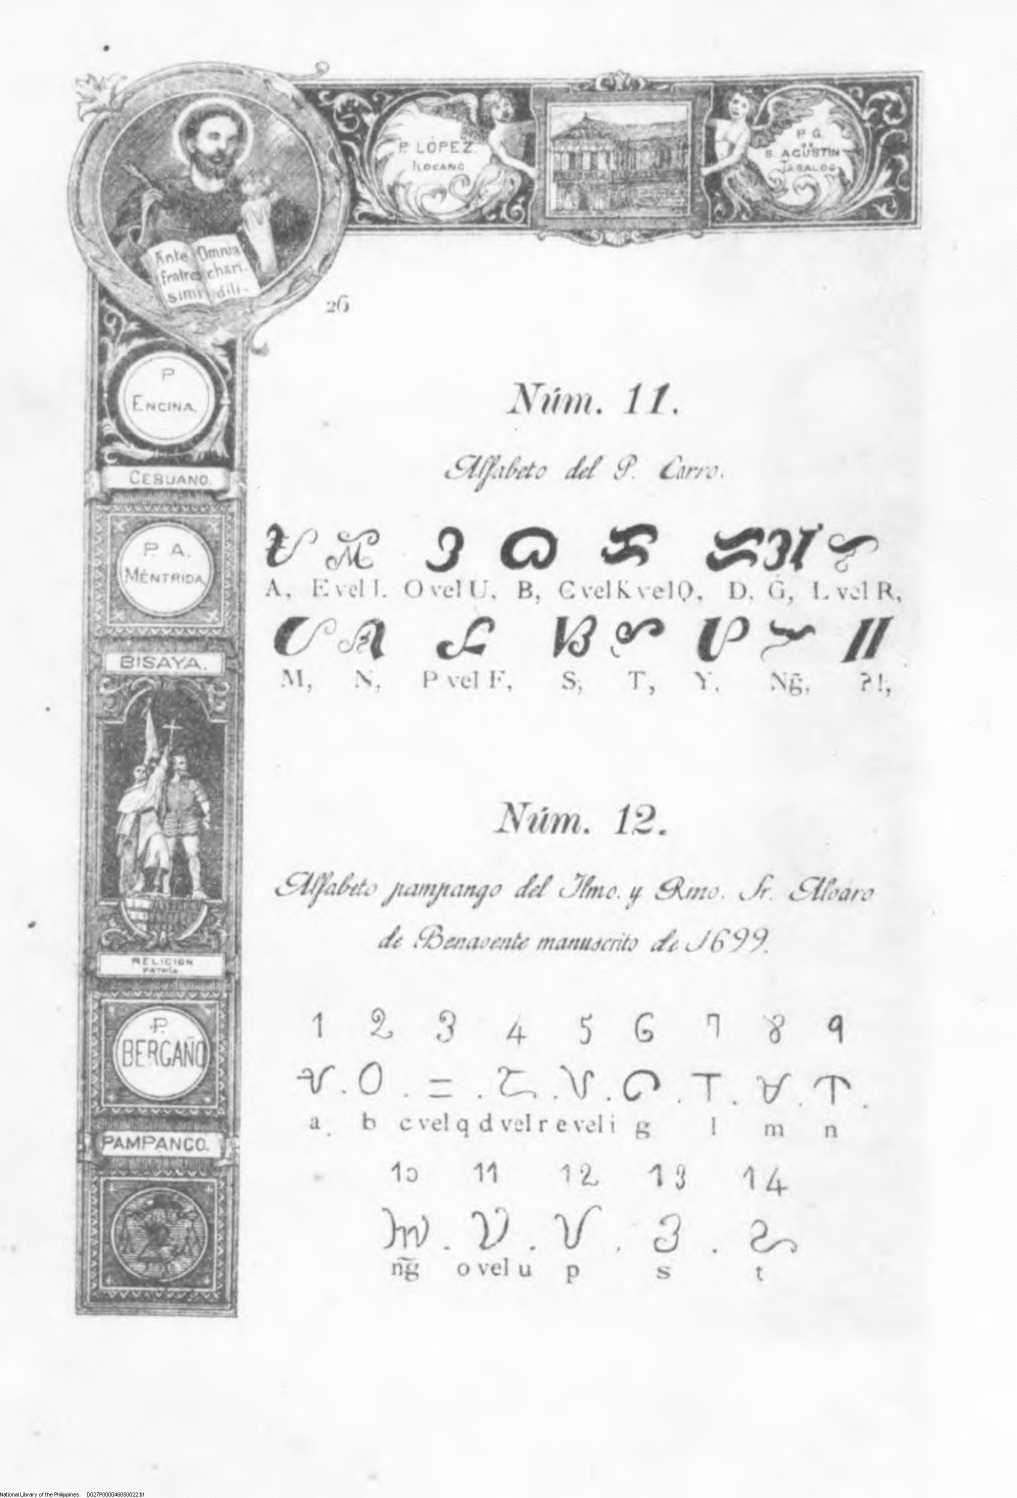 P. LÓPEZ.
ILOCANO
P. G.
DE
S. AGUSTÍN
TAGALOG
Ante Omnia
fratres chari-
simi dili-
26
P
ENCINA.
CEBUANO.
P. A.
MÉNTRIDA.
BISAYA.
RELIGION
PATRIA
P.
BERGAÑO
PAMPANGO.
Núm. 11.
Alfabeto del P. Carro.
A, E vel I. O vel U, B, C vel K vel Q, D, G, L vel R,
M, N, P vel F, S, T, Y, Ng̃, ?!,
Núm. 12.
Alfabeto pampango del Ilmo. y Rmo. Sr. Alvaro
de Benavente manuscrito de 1699.
1 2 3 4 5 6 7 8 9
a. b c vel q d vel r e vel i g l m n
10 11 12 13 14
ng̃ o vel u p s t
National Library of the Philippines